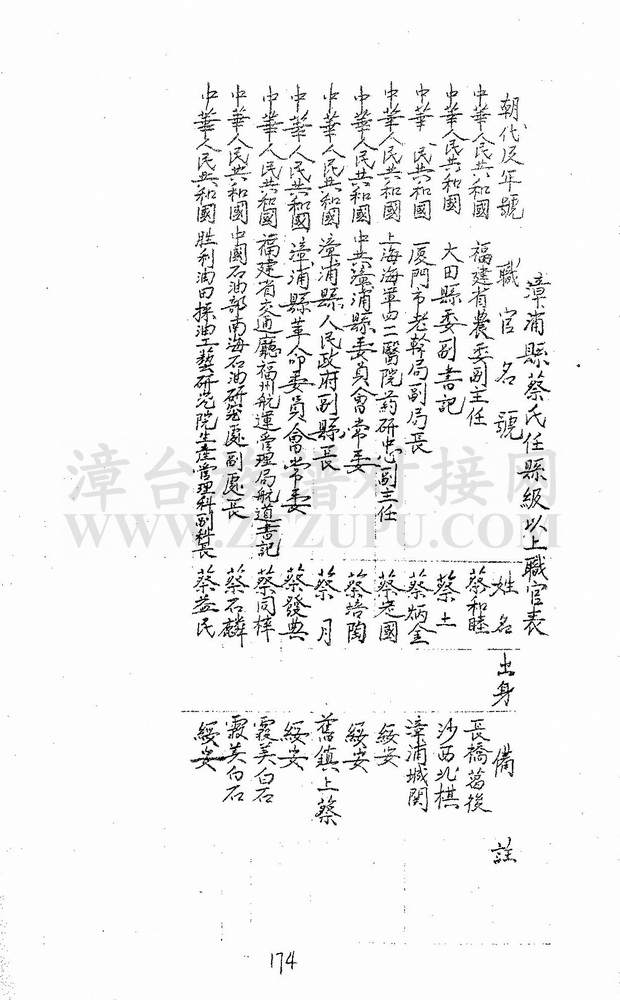 漳浦縣蔡氏任縣級以上職官表
朝代及年號 職官名號 姓名 出身 備註
中華人民共和國 福建省農委副主任 蔡和睦 長橋葛後
中華人民共和國 大田縣委副書記 蔡土 沙西北棋
中華民共和國 厦門市老幹局副局長 蔡炳金 漳浦城関
中華人民共和國 上海海軍四二醫院葯研 副主任 蔡老國 綏安
中華人民共和國 中共漳浦縣委員會常委 蔡培陶 綏安
中華人民共和國 漳浦縣人民政府副縣長 蔡月 舊鎮上蔡
中華人民共和國 漳浦縣革命委員會常委 蔡發典 綏安
中華人民共和國 福建省交通廳福州航運管理局航道書記 蔡同梓 霞美白石
中華人民共和國 中國石油部南海石油研究處副處長 蔡石麟 霞美白石
中華人民共和國 胜利油田採油工藝研究院生産管理科副科長 蔡益民 綏安
漳台族谱对接网
WWW.ZTZUPU.COM
174